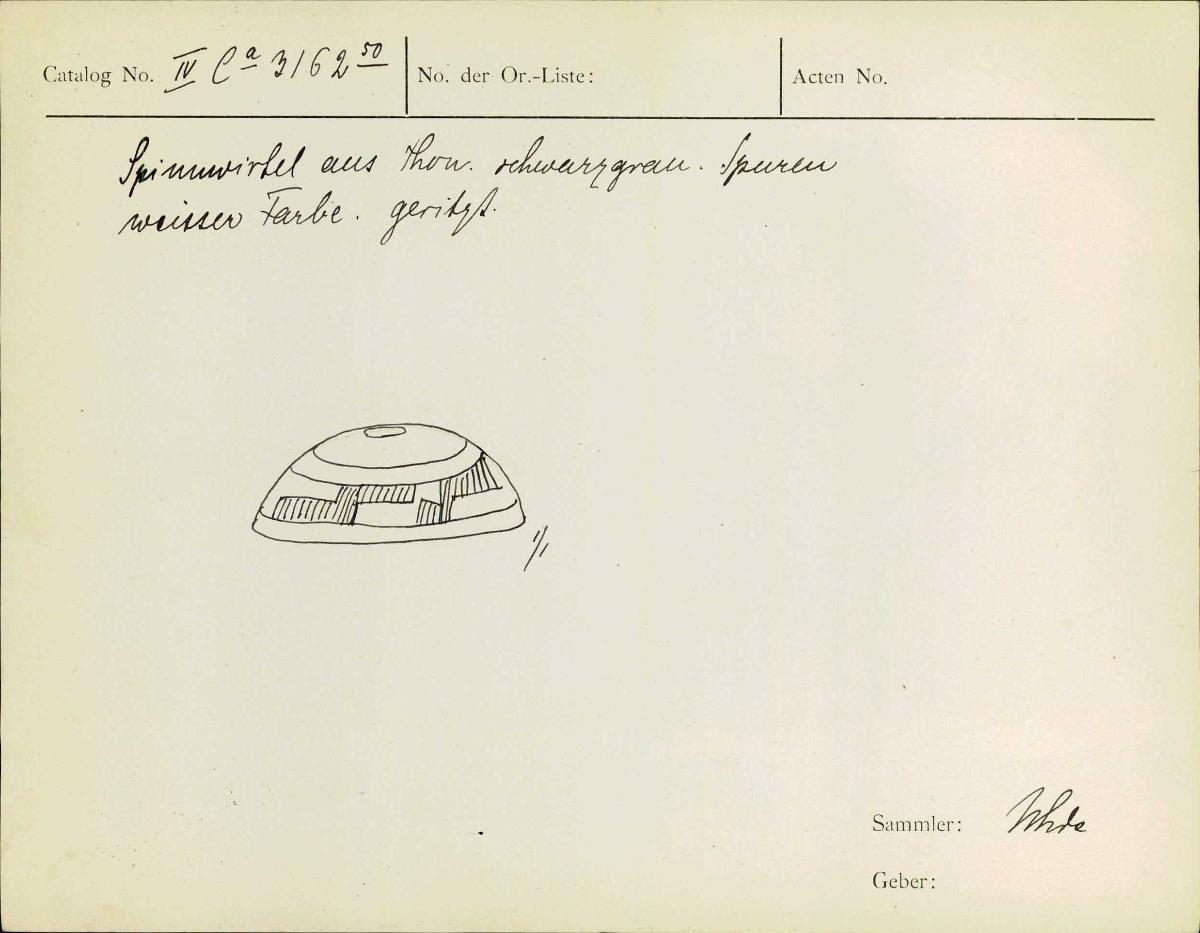 Catalog No. IV Ca 3162 50 No. der Or.-Liste: Acten No.
Spinnwirtel aus Thon. schwarzgrau. Spuren
weisser Farbe. geritzt.
1/1
Sammler: Uhde
Geber: